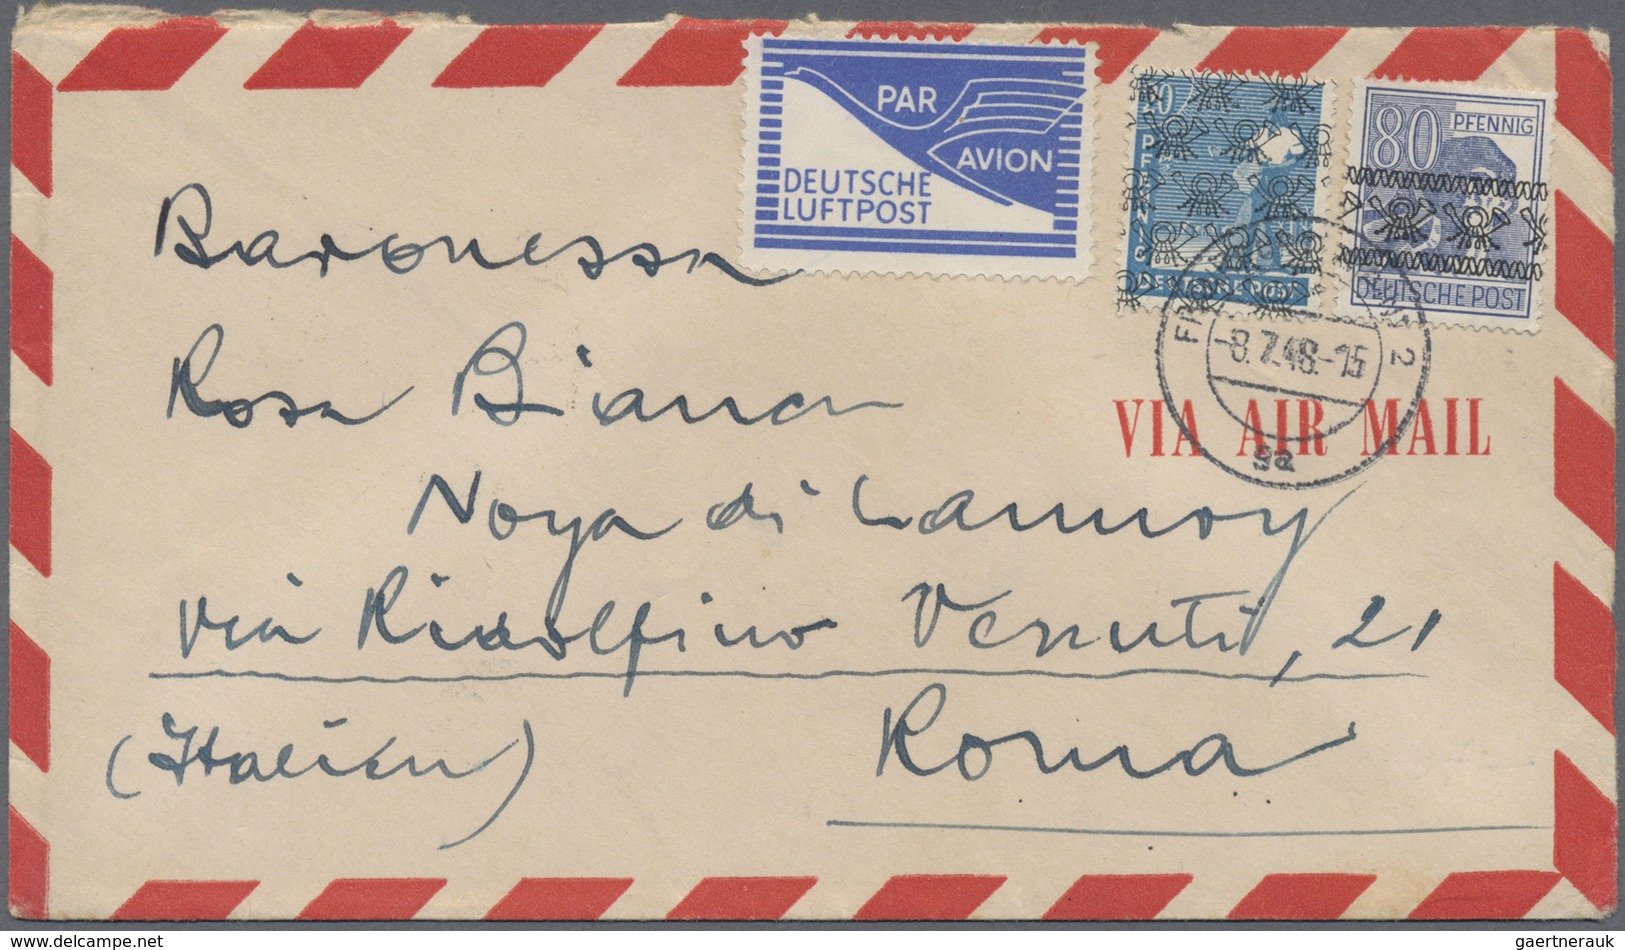 PAR
AVION
DEUTSCHE
LUFTPOST
PFENNIG
DEUTSCHE POST
80 PFENNIG
DEUTSCHE POST
-8.7.48.-15
2
ga
VIA AIR MAIL
Baronessa
Rosa Bianca
Noya di Lannoy
via Ridolfino Venuti, 21
(Italien) Roma
www.delcampe.net
gaertnerauk